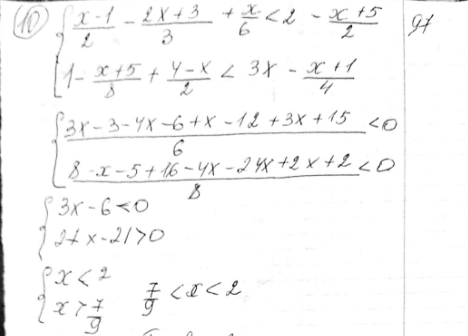 10) { (x-1)/2 - (2x+3)/3 + x/6 < 2 - (x+5)/2 97
1 - (x+5)/8 + (4-x)/2 < 3x - (x+1)/4
{ (3x-3-4x-6+x-12+3x+15)/6 < 0
(8-x-5+16-4x-24x+2x+2)/8 < 0
{ 3x-6<0
27x-21>0
{ x<2
x>7/9 7/9 < x < 2